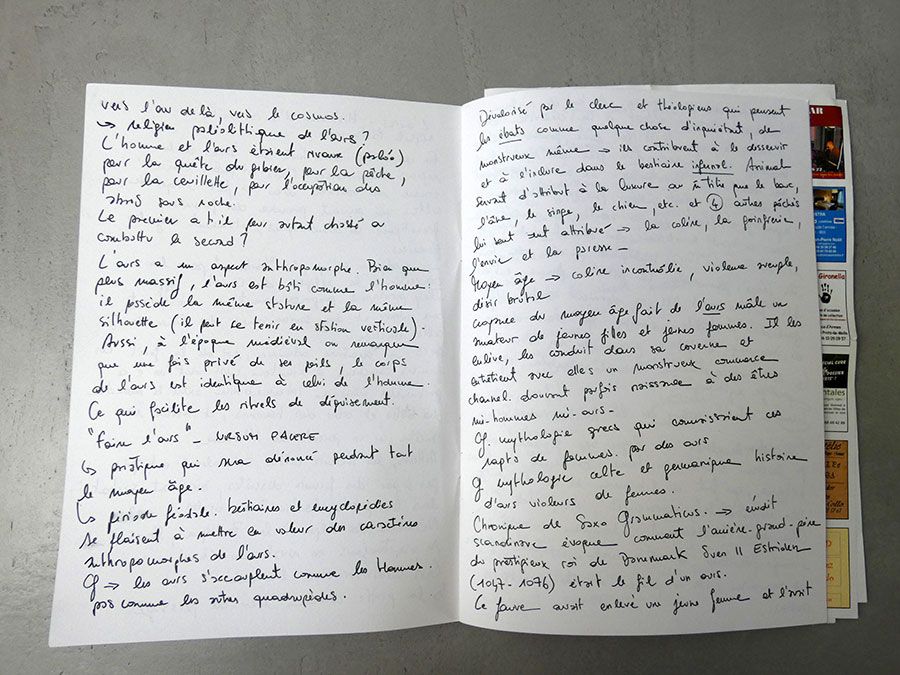 vers l'au delà, vers le cosmos.
↳ religion paléolithique de l'ours ?
L'homme et l'ours étaient rivaux (paléo)
pour la quête du gibier, pour la pêche,
pour la cueillette, pour l'occupation des
abris sous roche.
Le premier a t-il pour autant chassé a
combattu le second ?
L'ours a un aspect anthropomorphe. Bien que
plus massif, l'ours est bâti comme l'homme :
il possède la même stature et la même
silhouette (il peut se tenir en station verticale).
Aussi, à l'époque médiéval on remarque
que une fois privé de ses poils, le corps
de l'ours est identique à celui de l'homme.
Ce qui facilite les rituels de déguisement.
"Faire l'ours" _ URSUM FACERE
↳ pratique qui sera dénoncé pendant tout
le moyen âge.
↳ période féodale. bestiaires et encyclopédies
se plaisent à mettre en valeur des caractères
anthropomorphes de l'ours.
Cf → les ours s'accouplent comme les Hommes.
pas comme les autres quadrupèdes.
Dévalorisé par le clerc et théologiens qui pensent
les ébats comme quelque chose d'inquiétant, de
monstrueux même → ils contribuent à le desservir
et à l'inclure dans le bestiaire infernal. Animal
servant d'attribut à la luxure au m titre que le bouc,
l'âne, le singe, le chien, etc. et 4 autres péchés
lui sont attribué → la colère, la goinfrerie,
l'envie et la paresse _
Moyen âge → colère incontrôlée, violence aveugle,
désir brutal
du moyen âge fait de l'ours mâle un
amateur de jeunes filles et jeunes femmes. Il les
enlève, les conduit dans sa caverne et
entretient avec elles un monstrueux commerce
charnel. donnant parfois naissance à des êtres
mi-hommes mi-ours _
Cf mythologie grecs qui connaissaient ces
rapts de femmes. par des ours
Cf mythologie celte et germanique histoire
d'ours violeurs de femmes.
Chronique de Saxo Grammaticus. → érudit
scandinave évoque comment l'arrière-grand-père
du prestigieux roi de Danemark Sven II Estridsen
(1047-1076) était le fil d'un ours.
Ce fauve avait enlevé une jeune femme et l'avait
AR
Gironella